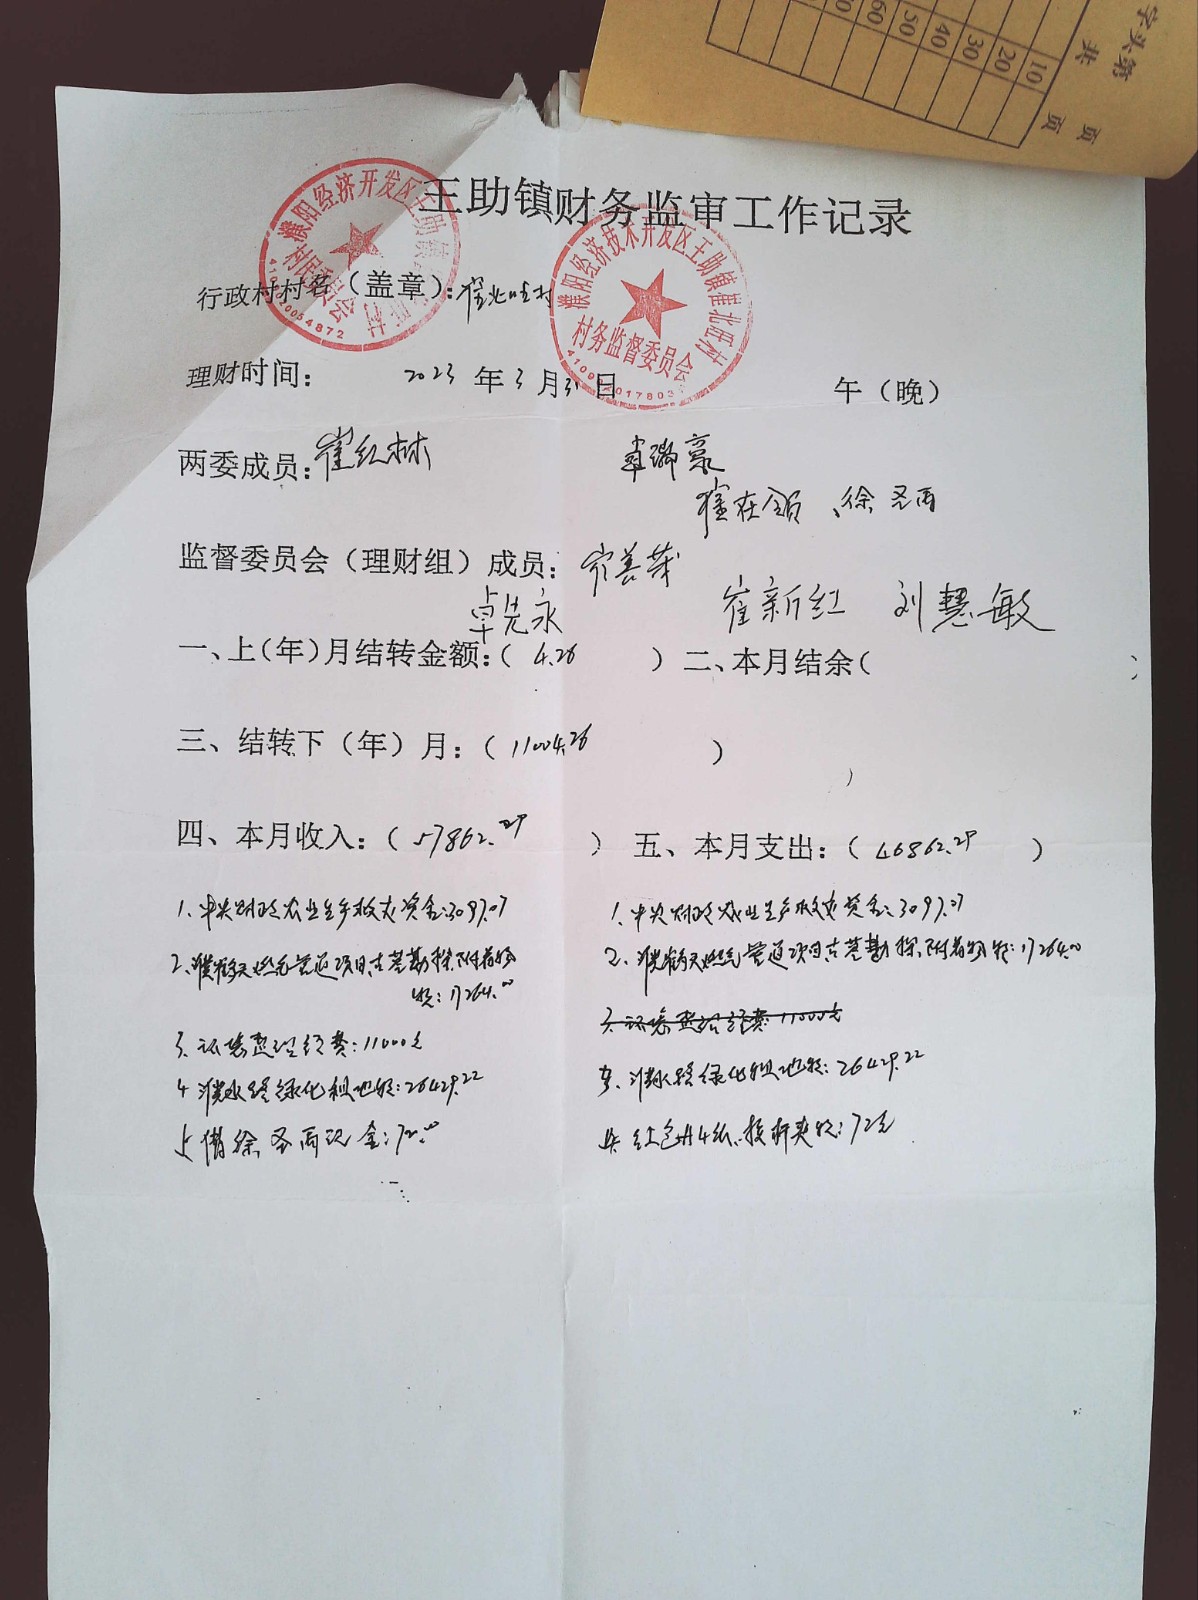 字头第 页
共 页
10
20
30
40
50
60
王助镇财务监审工作记录
濮阳经济开发区王助镇
村民委员会
濮阳经济技术开发区王助镇崔北旺村
村务监督委员会
行政村村名（盖章）：崔北旺村
理财时间： 2023 年 3 月 31 日 午（晚）
两委成员：崔红林 卓瑞豪
崔在领、徐圣丙
监督委员会（理财组）成员：宋善荣
卓先永 崔新红 刘慧敏
一、上（年）月结转金额：（ 4.26 ） 二、本月结余（ ）
三、结转下（年）月：（ 11004.26 ）
四、本月收入：（ 57862.29 ） 五、本月支出：（ 46862.29 ）
1、中央财政农业生产救灾资金：3097.07
2、濮鹤天然气管道项目古墓勘探附着物
款：17264.00
3、环境整治经费：11000元
4、濮水路绿化租地款：26429.22
5、借徐圣丙现金：72.00
1、中央财政农业生产救灾资金：3097.07
2、濮鹤天然气管道项目古墓勘探附着物款：17264.00
3、环境整治经费：11000元
3、濮水路绿化租地款：26429.22
4、红色A4纸、按断夹款：72元